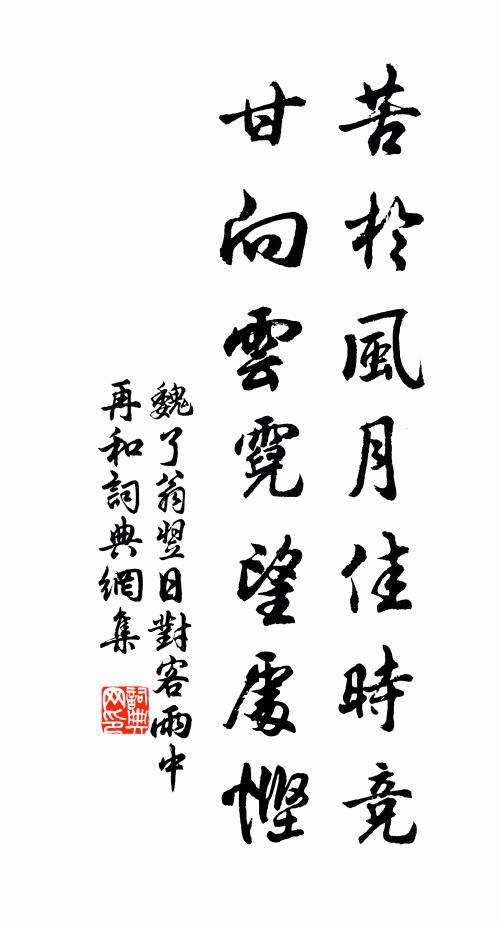 苦於風月佳時竞
甘向雲霓望處慳
魏了翁翌日對客雨中
再和詞典網集
詞典
网印